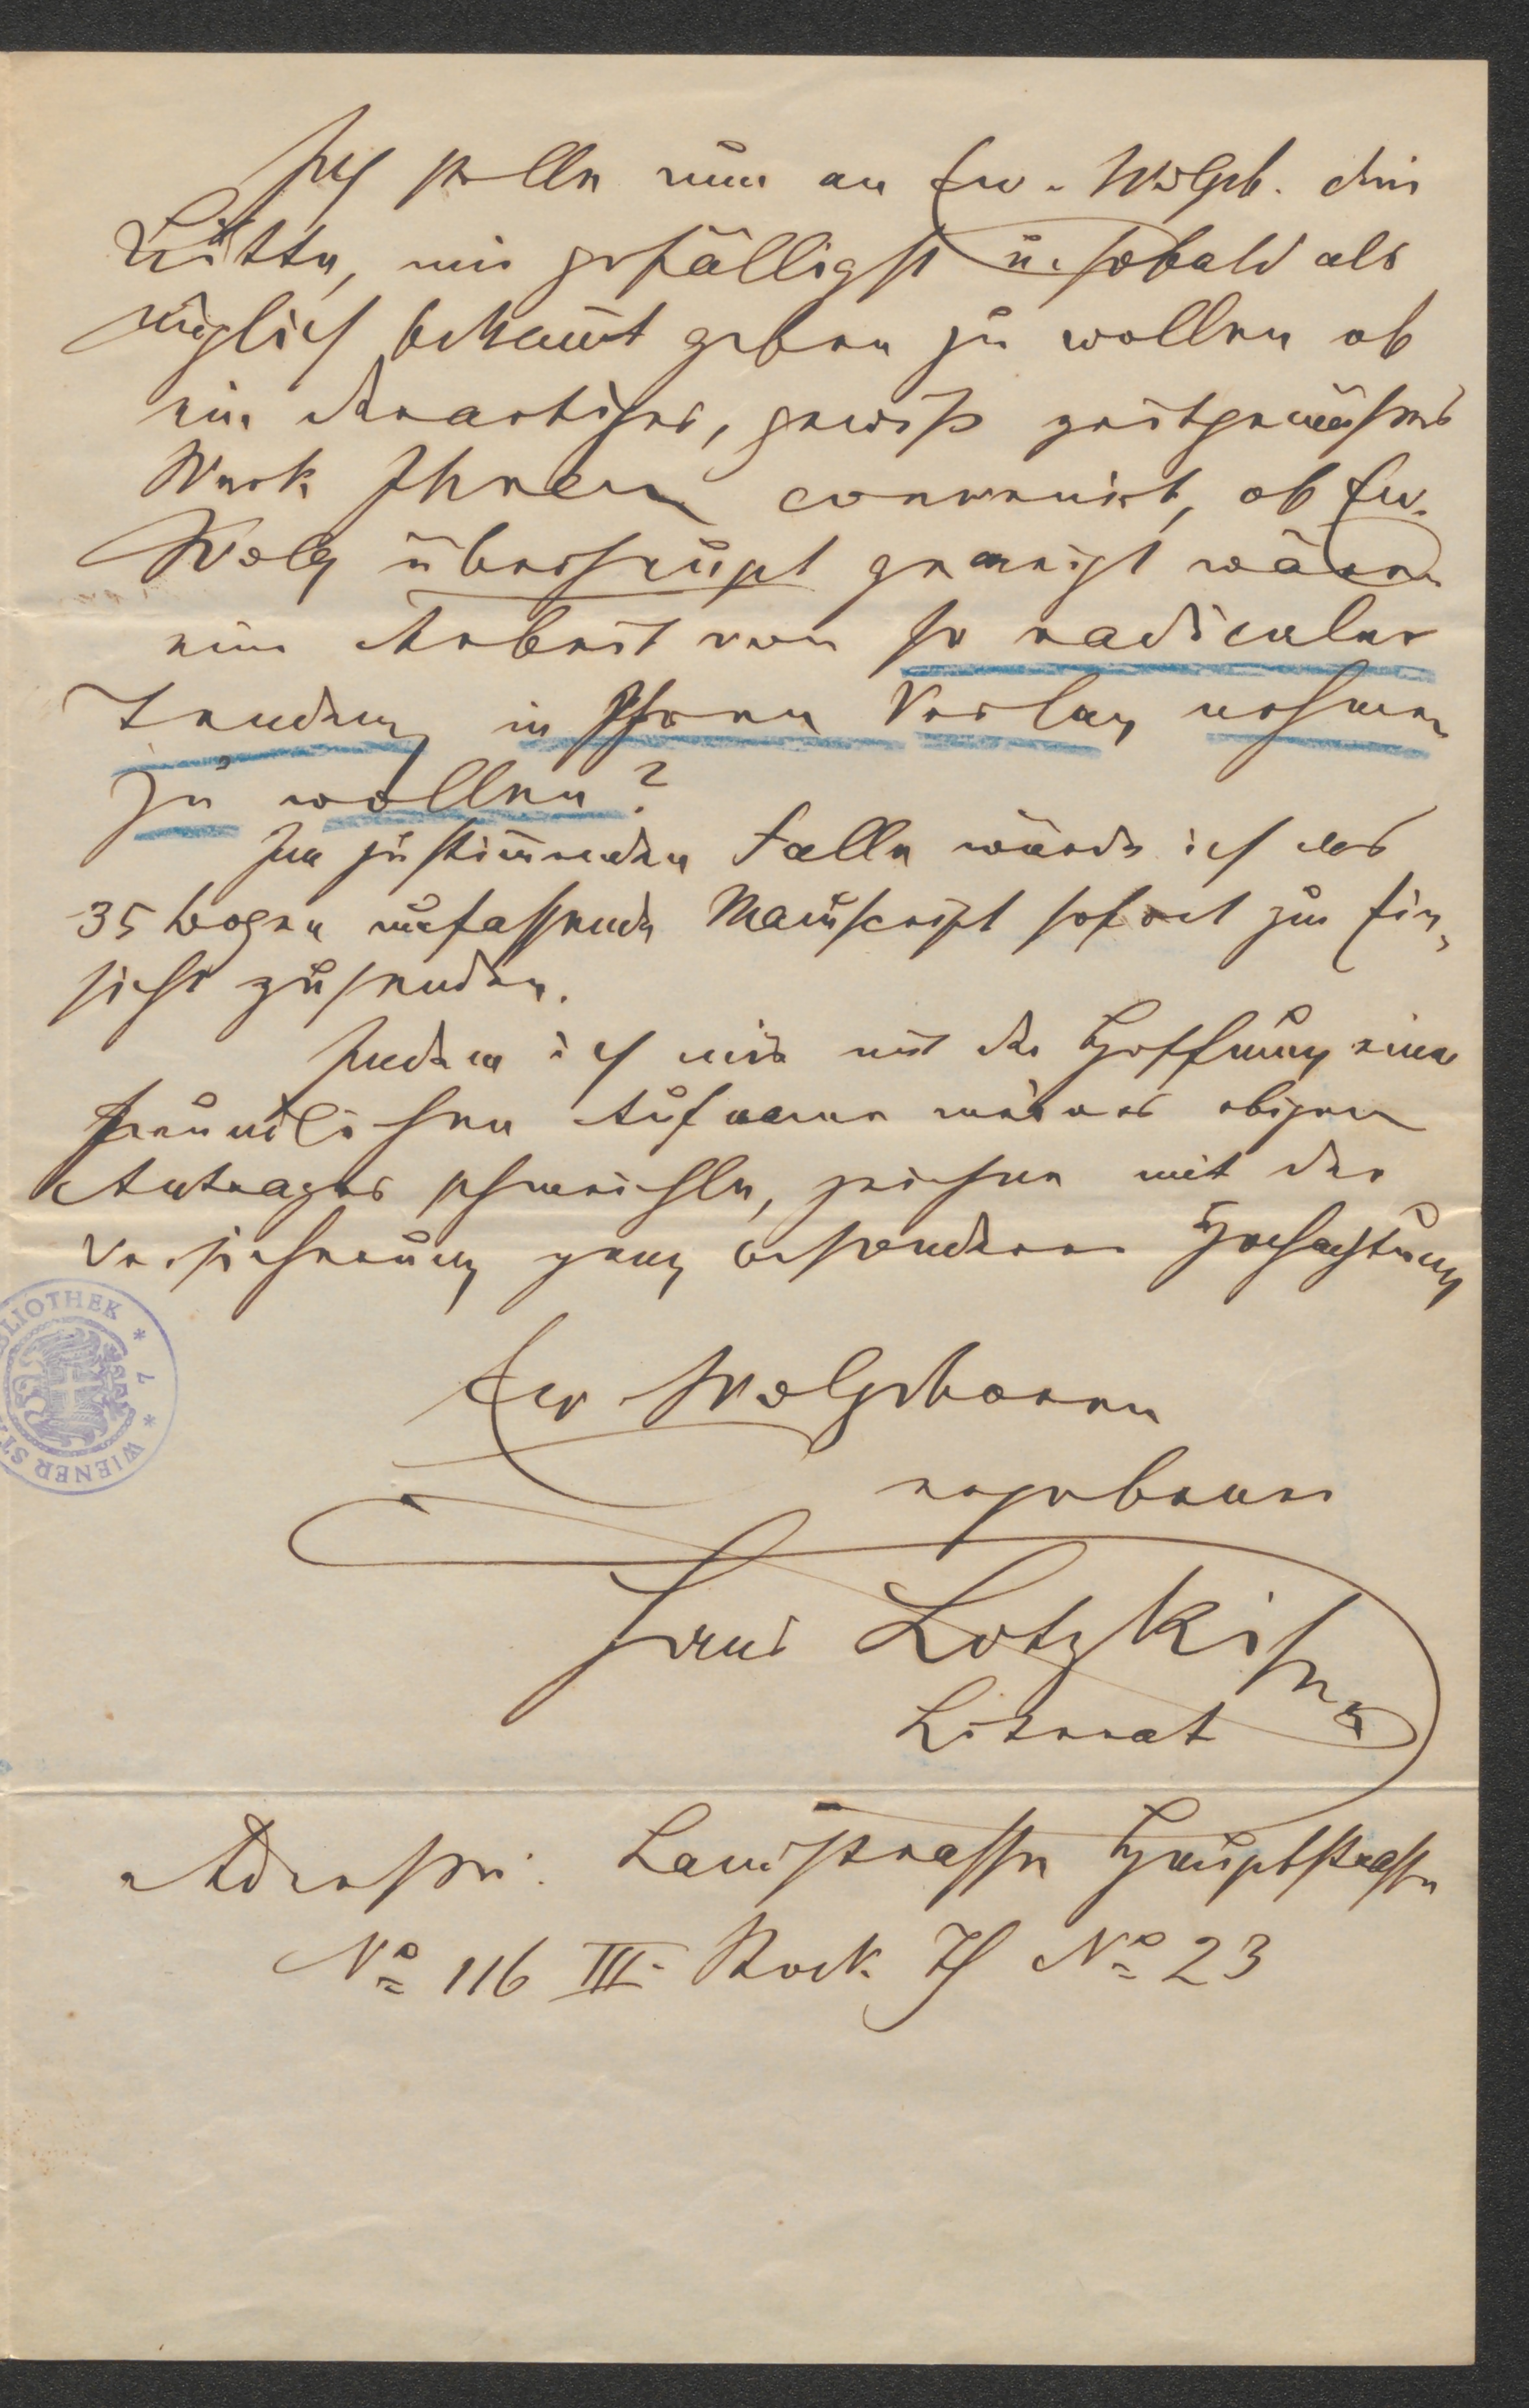 Ich stelle nun an Ew. Wolgeb. die
Bitte, mir gefälligst u. sobald als
möglich bekannt geben zu wollen ob
ein derartiges, gewiß zeitgemäßes
Werk Ihnen convenirt, ob Ew.
Wolg überhaupt geneigt wären
eine Arbeit von so radicaler
Tendenz in Ihren Verlag nehmen
zu wollen?
Im zustimmenden Falle würde ich das
35 Bogen umfassende Manuscript sofort zur Ein-
sicht zusenden.
Indem ich mir mit der Hoffnung einer
freundlichen Aufname meines obigen
Antrages schmeichle, zeichne mit der
Versicherung ganz besonderer Hochachtung
Ew. Wolgeboren
ergebener
Hans Lotzky
Literat
Adresse: Landstrasse Hauptstrasse
No 116 III. Stock Th No 23
BLIOTHEK * 7 * WIENER ST